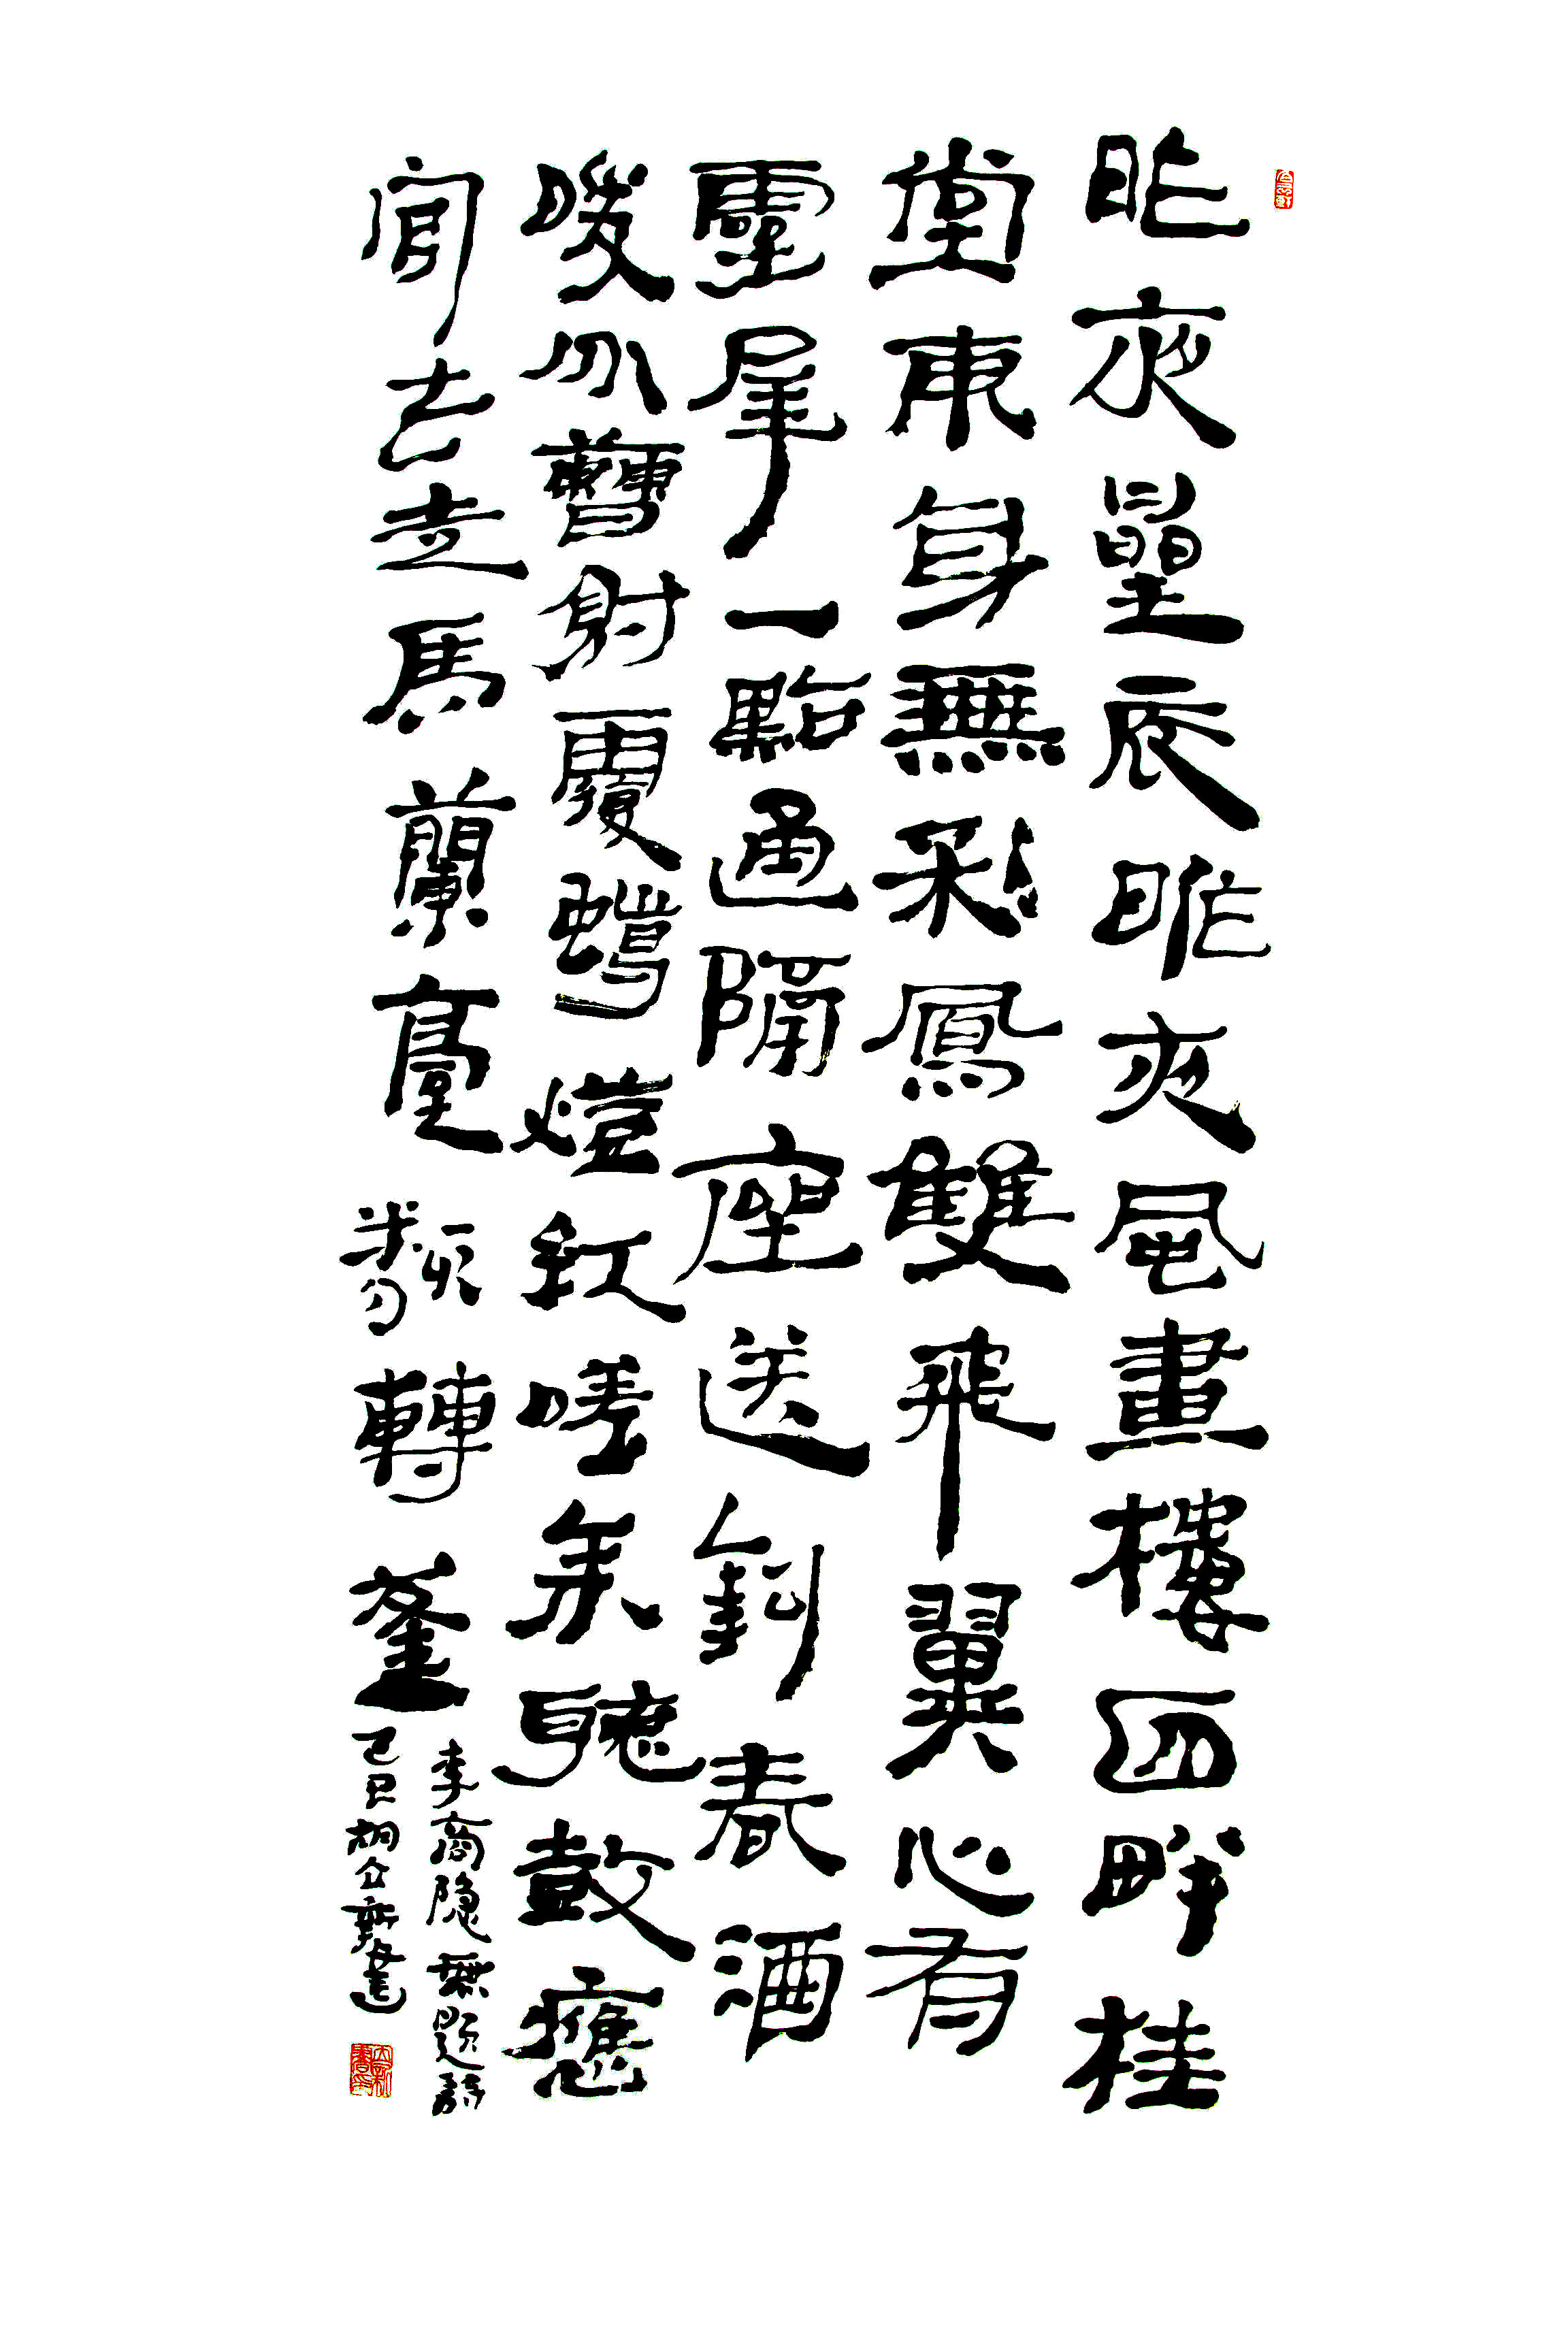 昨夜星辰昨夜風畫樓西畔桂
堂東身無彩鳳雙飛翼心有
靈犀一點通隔座送鉤春酒
暖分曹射覆蠟燈紅嗟余聽鼓應
官去走馬蘭臺類轉蓬
李商隐無題詩
己巳胡新書